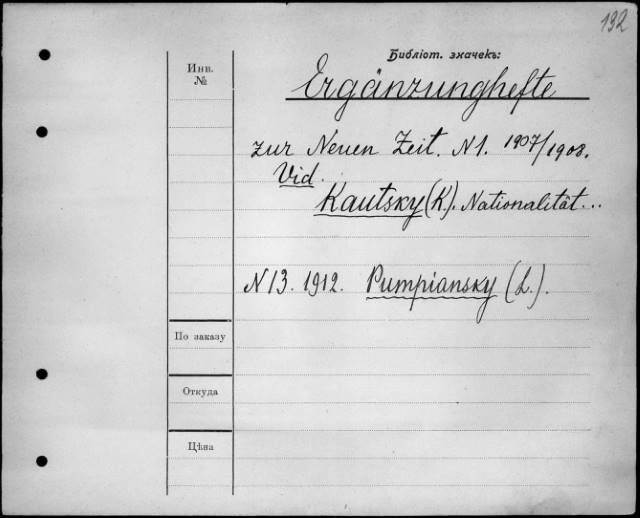 192
Библіот. значекъ:
Инв.
№
Ergänzunghefte
zur Neuen Zeit. N1. 1907/1908.
Vid.
Kautsky (K). Nationalität...
N13. 1912. Pumpiansky (L.).
По заказу
Откуда
Цѣна